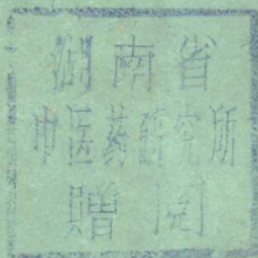 湖南省
中医药研究所
赠阅